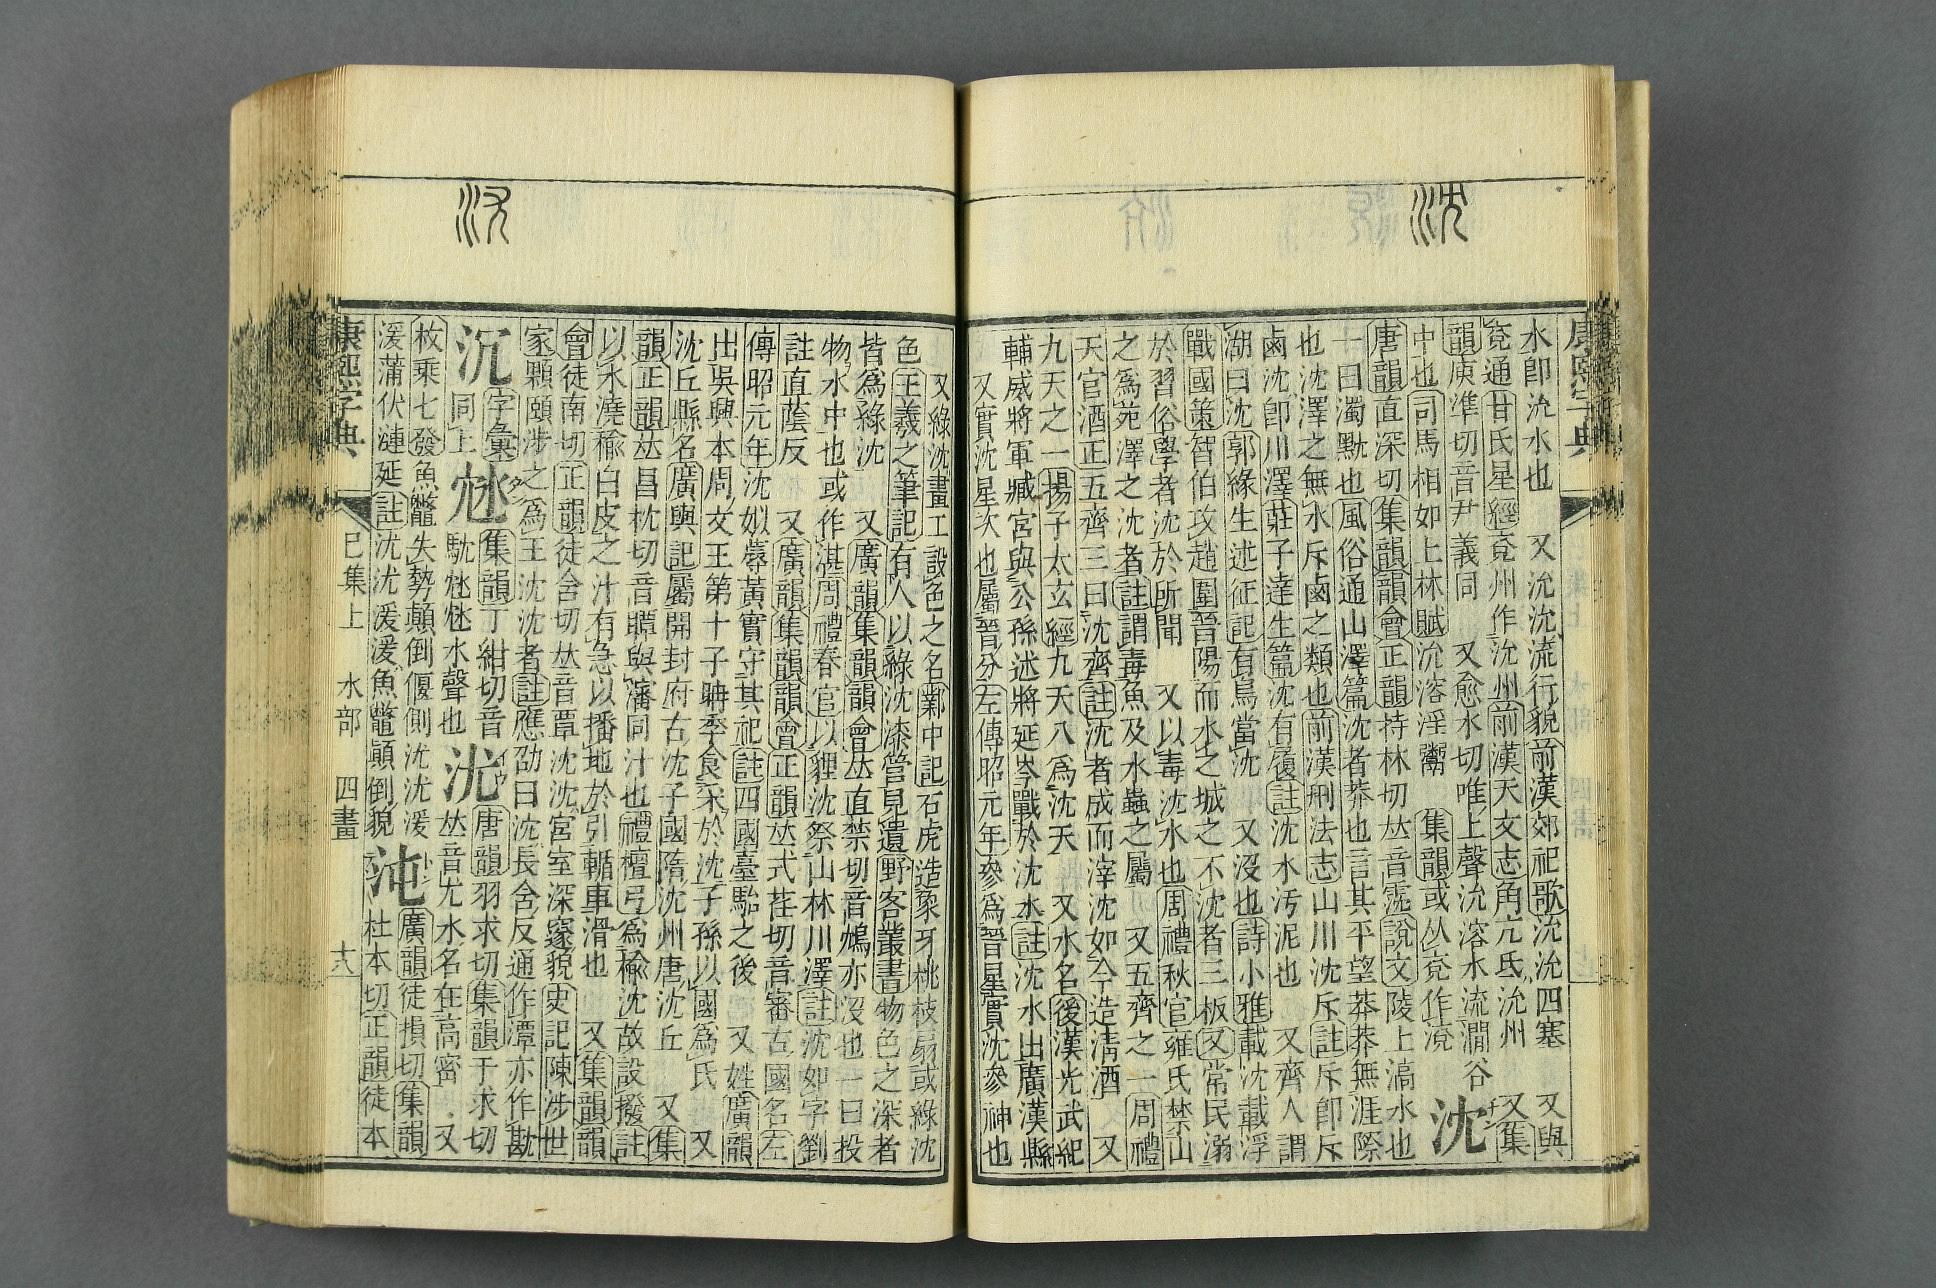 沈
康熙字典
水卽沇水也 又沇沇流行貌前漢郊祀歌沇沇四塞 又與
兗通甘氏星經兗州作沇州前漢天文志角亢氐沇州 又集
韻庾準切音尹義同 又愈水切唯上聲沇溶水流澗谷
中也司馬相如上林賦沇溶淫鬻 集韻或从兗作渷
沈
唐韻直深切集韻韻會正韻持林切𠀤音霃說文陵上滈水也
一曰濁黕也風俗通山澤篇沈者莽也言其平望莽莽無涯際
也沈澤之無水斥鹵之類也前漢刑法志山川沈斥註斥卽斥
鹵沈卽川澤莊子達生篇沈有履註沈水污泥也 又齊人謂
湖曰沈郭緣生述征記有鳥當沈 又沒也詩小雅載沈載浮
戰國策智伯攻趙圍晉陽而水之城之不沈者三板又常民溺
於習俗學者沈於所聞 又以毒沈水也周禮秋官雍氏禁山
之爲苑澤之沈者註謂毒魚及水蟲之屬 又五齊之一周禮
天官酒正五齊三曰沈齊註沈者成而滓沈如今造淸酒 又
九天之一揚子太玄經九天八爲沈天 又水名後漢光武紀
輔威將軍臧宮與公孫述將延岑戰於沈水註沈水出廣漢縣
又實沈星次也屬晉分左傳昭元年參爲晉星實沈參神也
沉
又綠沈畫工設色之名鄴中記石虎造象牙桃枝扇或綠沈
色王羲之筆記有人以綠沈漆管見遺野客叢書物色之深者
皆爲綠沈 又廣韻集韻韻會𠀤直禁切音鴆亦沒也一曰投
物水中也或作湛周禮春官以貍沈祭山林川澤註沈如字劉
註直蔭反 又廣韻集韻韻會正韻𠀤式荏切音審古國名左
傳昭元年沈姒蓐黃實守其祀註四國臺駘之後 又姓廣韻
出吳興本周文王第十子聃季食采於沈子孫以國爲氏 又
沈丘縣名廣輿記屬開封府古沈子國隋沈州唐沈丘 又集
韻正韻𠀤昌枕切音瞫與瀋同汁也禮檀弓爲楡沈故設撥註
以水澆楡白皮之汁有急以播地於引輴車滑也 又集韻韻
會徒南切正韻徒含切𠀤音覃沈沈宮室深邃貌史記陳涉世
家顆頤涉之爲王沈沈者註應劭曰沈長含反通作潭亦作戡
沉
字彙同上
𣲺
集韻丁紺切音馾𣲺𣲺水聲也
沋
唐韻羽求切集韻于求切𠀤音尤水名在高密 又
枚乘七發魚鼈失勢顚倒偃側沋沋湲
湲蒲伏漣延註沋沋湲湲魚鼈顚倒貌
沌
廣韻徒損切集韻
杜本切正韻徒本
康熙字典
巳集上 水部 四畫
十八